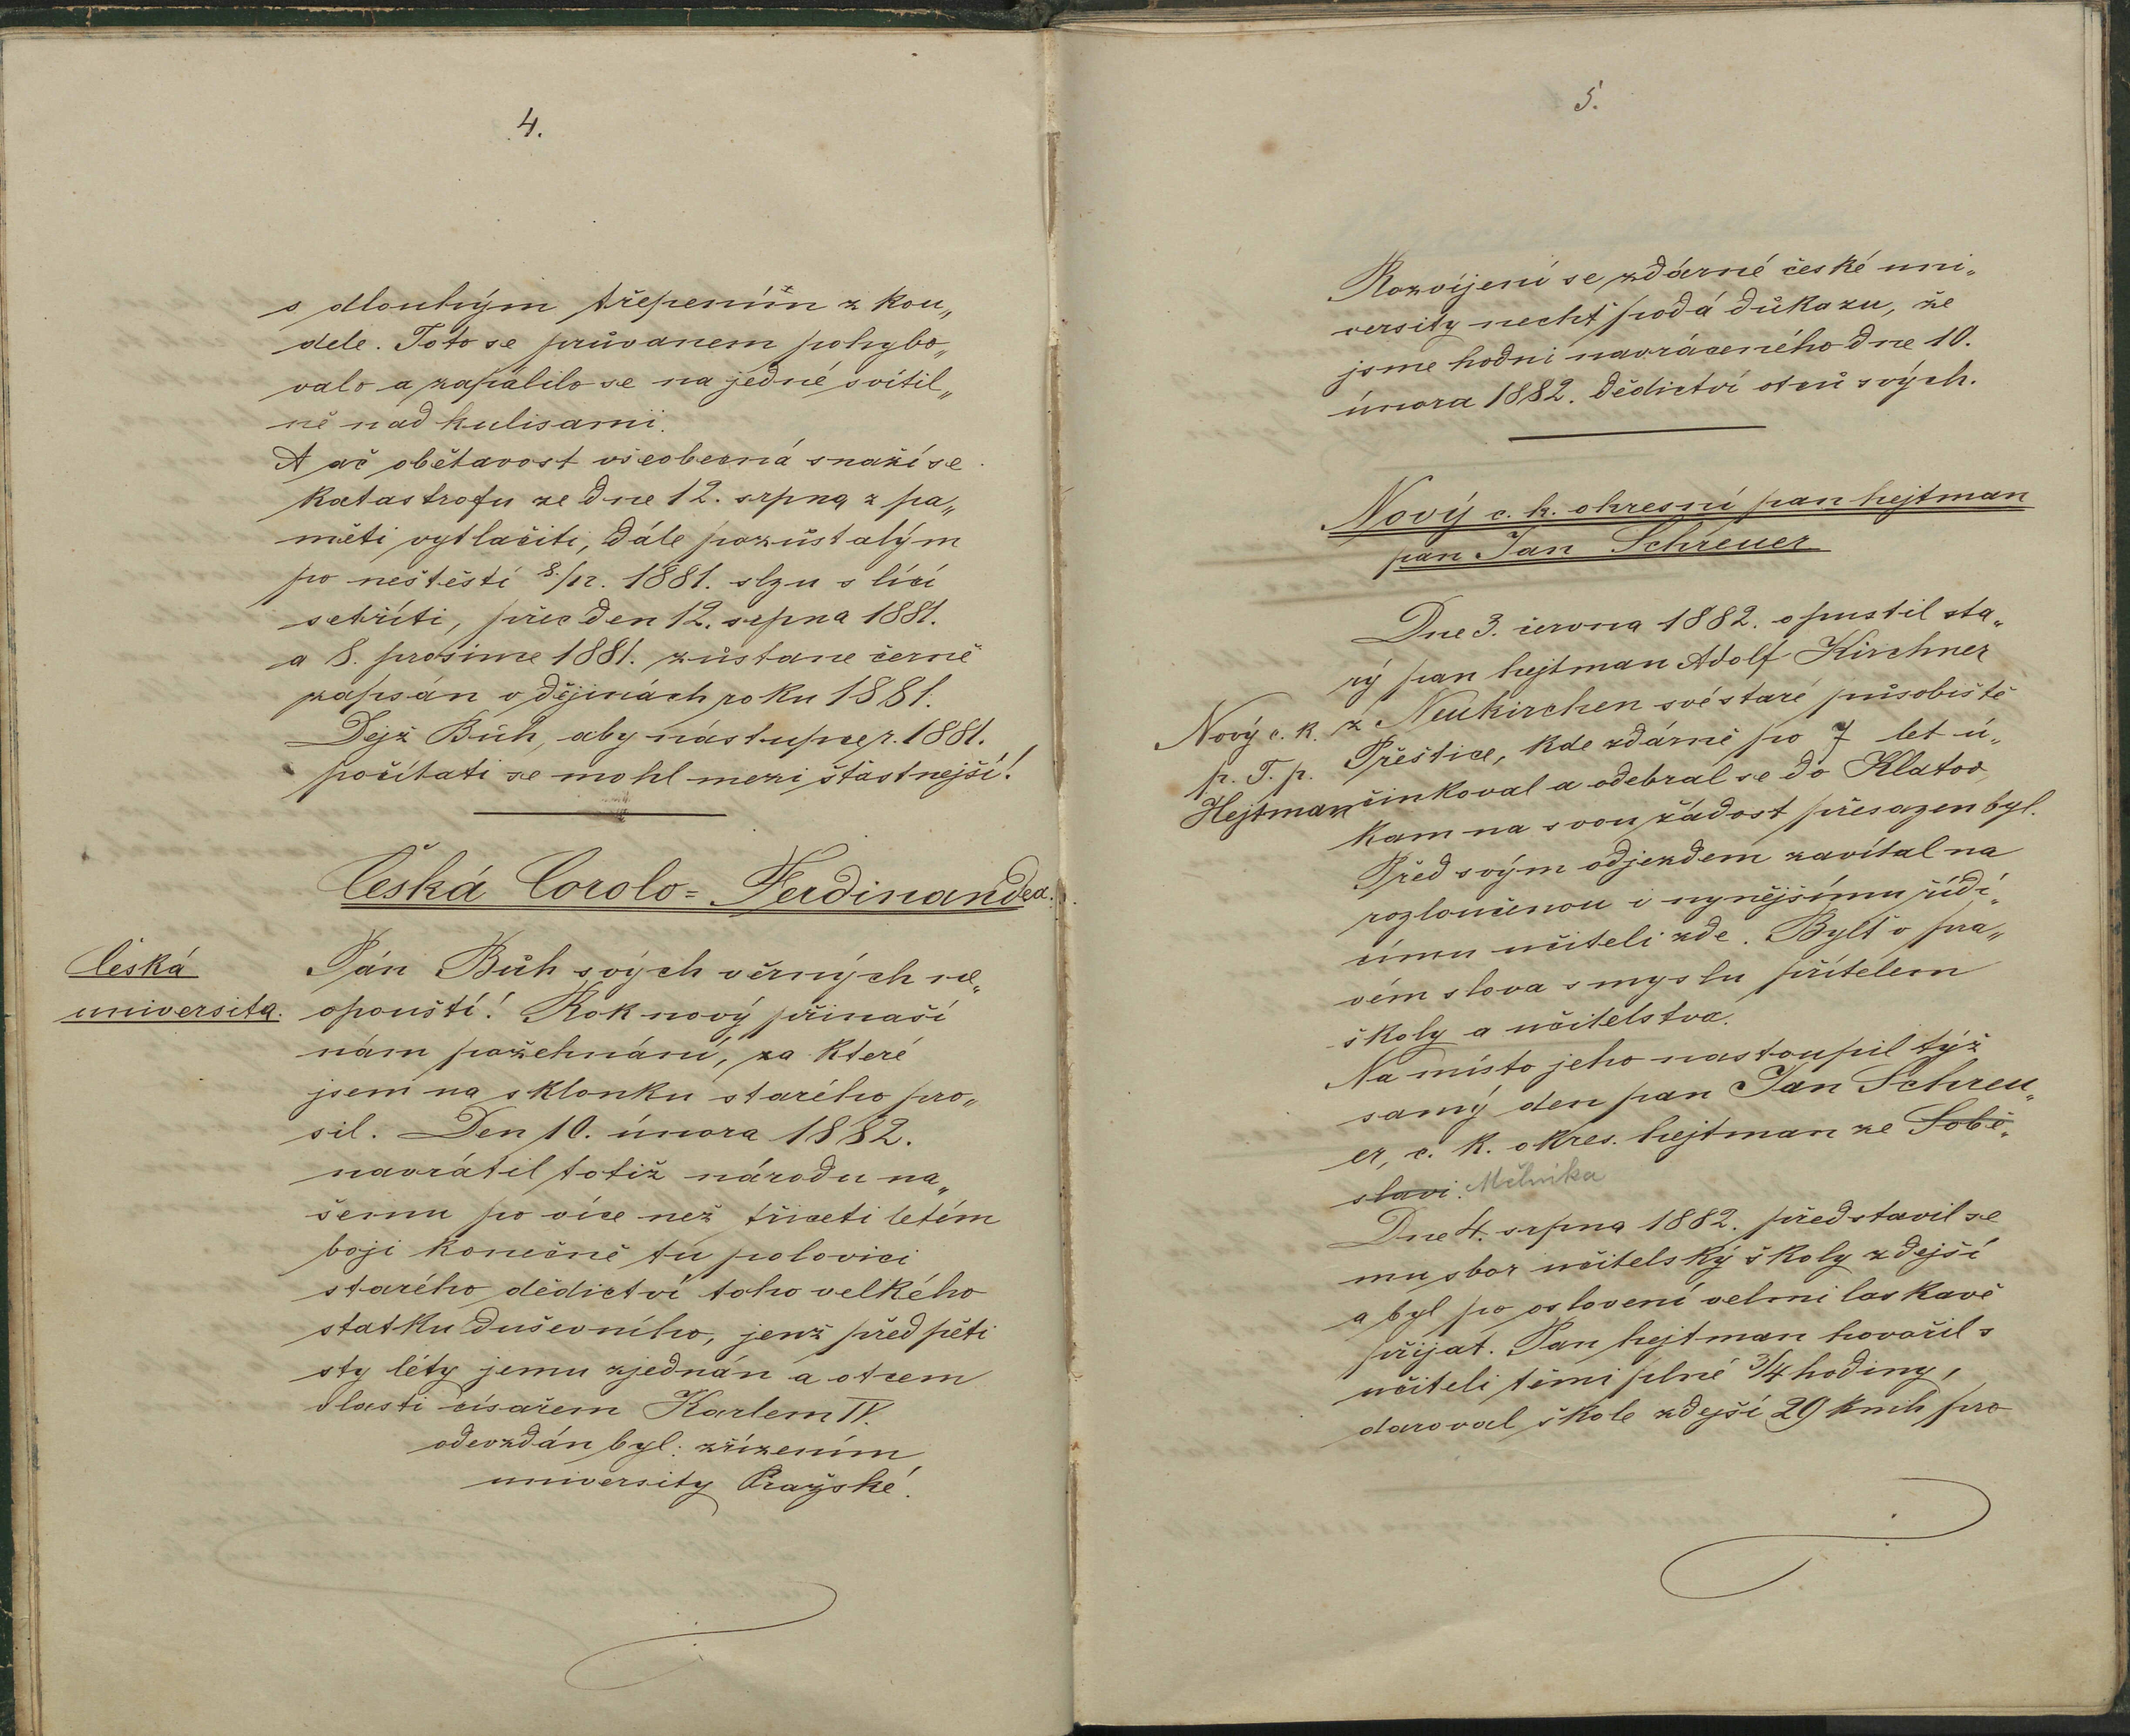 4.
s dlouhým třepením z kou„
dele. Toto se průvanem pohybo„
valo a zapálilo se na jedné svítil„
ně nad kulisami.
A ač obětavost všeobecná snaží se
katastrofu ze dne 12. srpna z pa„
měti vytlačiti, dále pozůstalým
po neštěstí 8./pr. 1881. slzu s lící
setříti, přec den 12. srpna 1881.
a 8. prosince 1881. zůstane černě
zapsán v dějinách roku 1881.
Dejž Bůh, aby nástupce r. 1881.
počítati se mohl mezi šťastnejší!
Česká Corolo=Ferdinandea.
Česká
universita.
Pán Bůh svých věrných ne„
opouští! Rok nový přinaší
nám požehnání, za které
jsem na sklonku starého pro„
sil. Den 10. února 1882.
navrátil totiž národu na„
šemu po více než třiceti letím
boji konečně tu polovici
starého dědictví toho velkého
statku duševního, jenž před pěti
sty léty jemu zjednán a otcem
vlasti císařem Karlem IV.
odevzdán byl: zřízením
university Pražské.
5.
Rozvíjení se zdárné české uni„
versity nechť podá důkazu, že
jsme hodni navráceného dne 10.
února 1882. dědictví otců svých.
Nový c. k. okresní pan hejtman
pan Jan Schreuer
Dne 3. června 1882. opustil sta„
rý pan hejtman Adolf Kirchner
z Neukirchen své staré působiště
Přeštice, kde zdárně po 7 let ú„
činkoval a odebral se do Klatov,
kam na svou žádost přesazen byl.
Nový c. k.
p. T. p.
Hejtman
Před svým odjezdem zavítal na
rozloučenou i nynějšímu řídí„
címu učiteli zde. Bylť v pra„
vém slova smyslu přítelem
školy a učitelstva.
Na místo jeho nastoupil týž
samý den pan Jan Schreu„
er, c. k. okres. hejtman ze Sobě„
slavi. Mělníka
Dne 4. srpna 1882. představil se
mu sbor učitelský školy zdejší
a byl po oslovení velmi laskavě
přijat. Pan hejtman hovořil s
učiteli těmi plné 3/4 hodiny,
daroval škole zdejší 29 knih pro